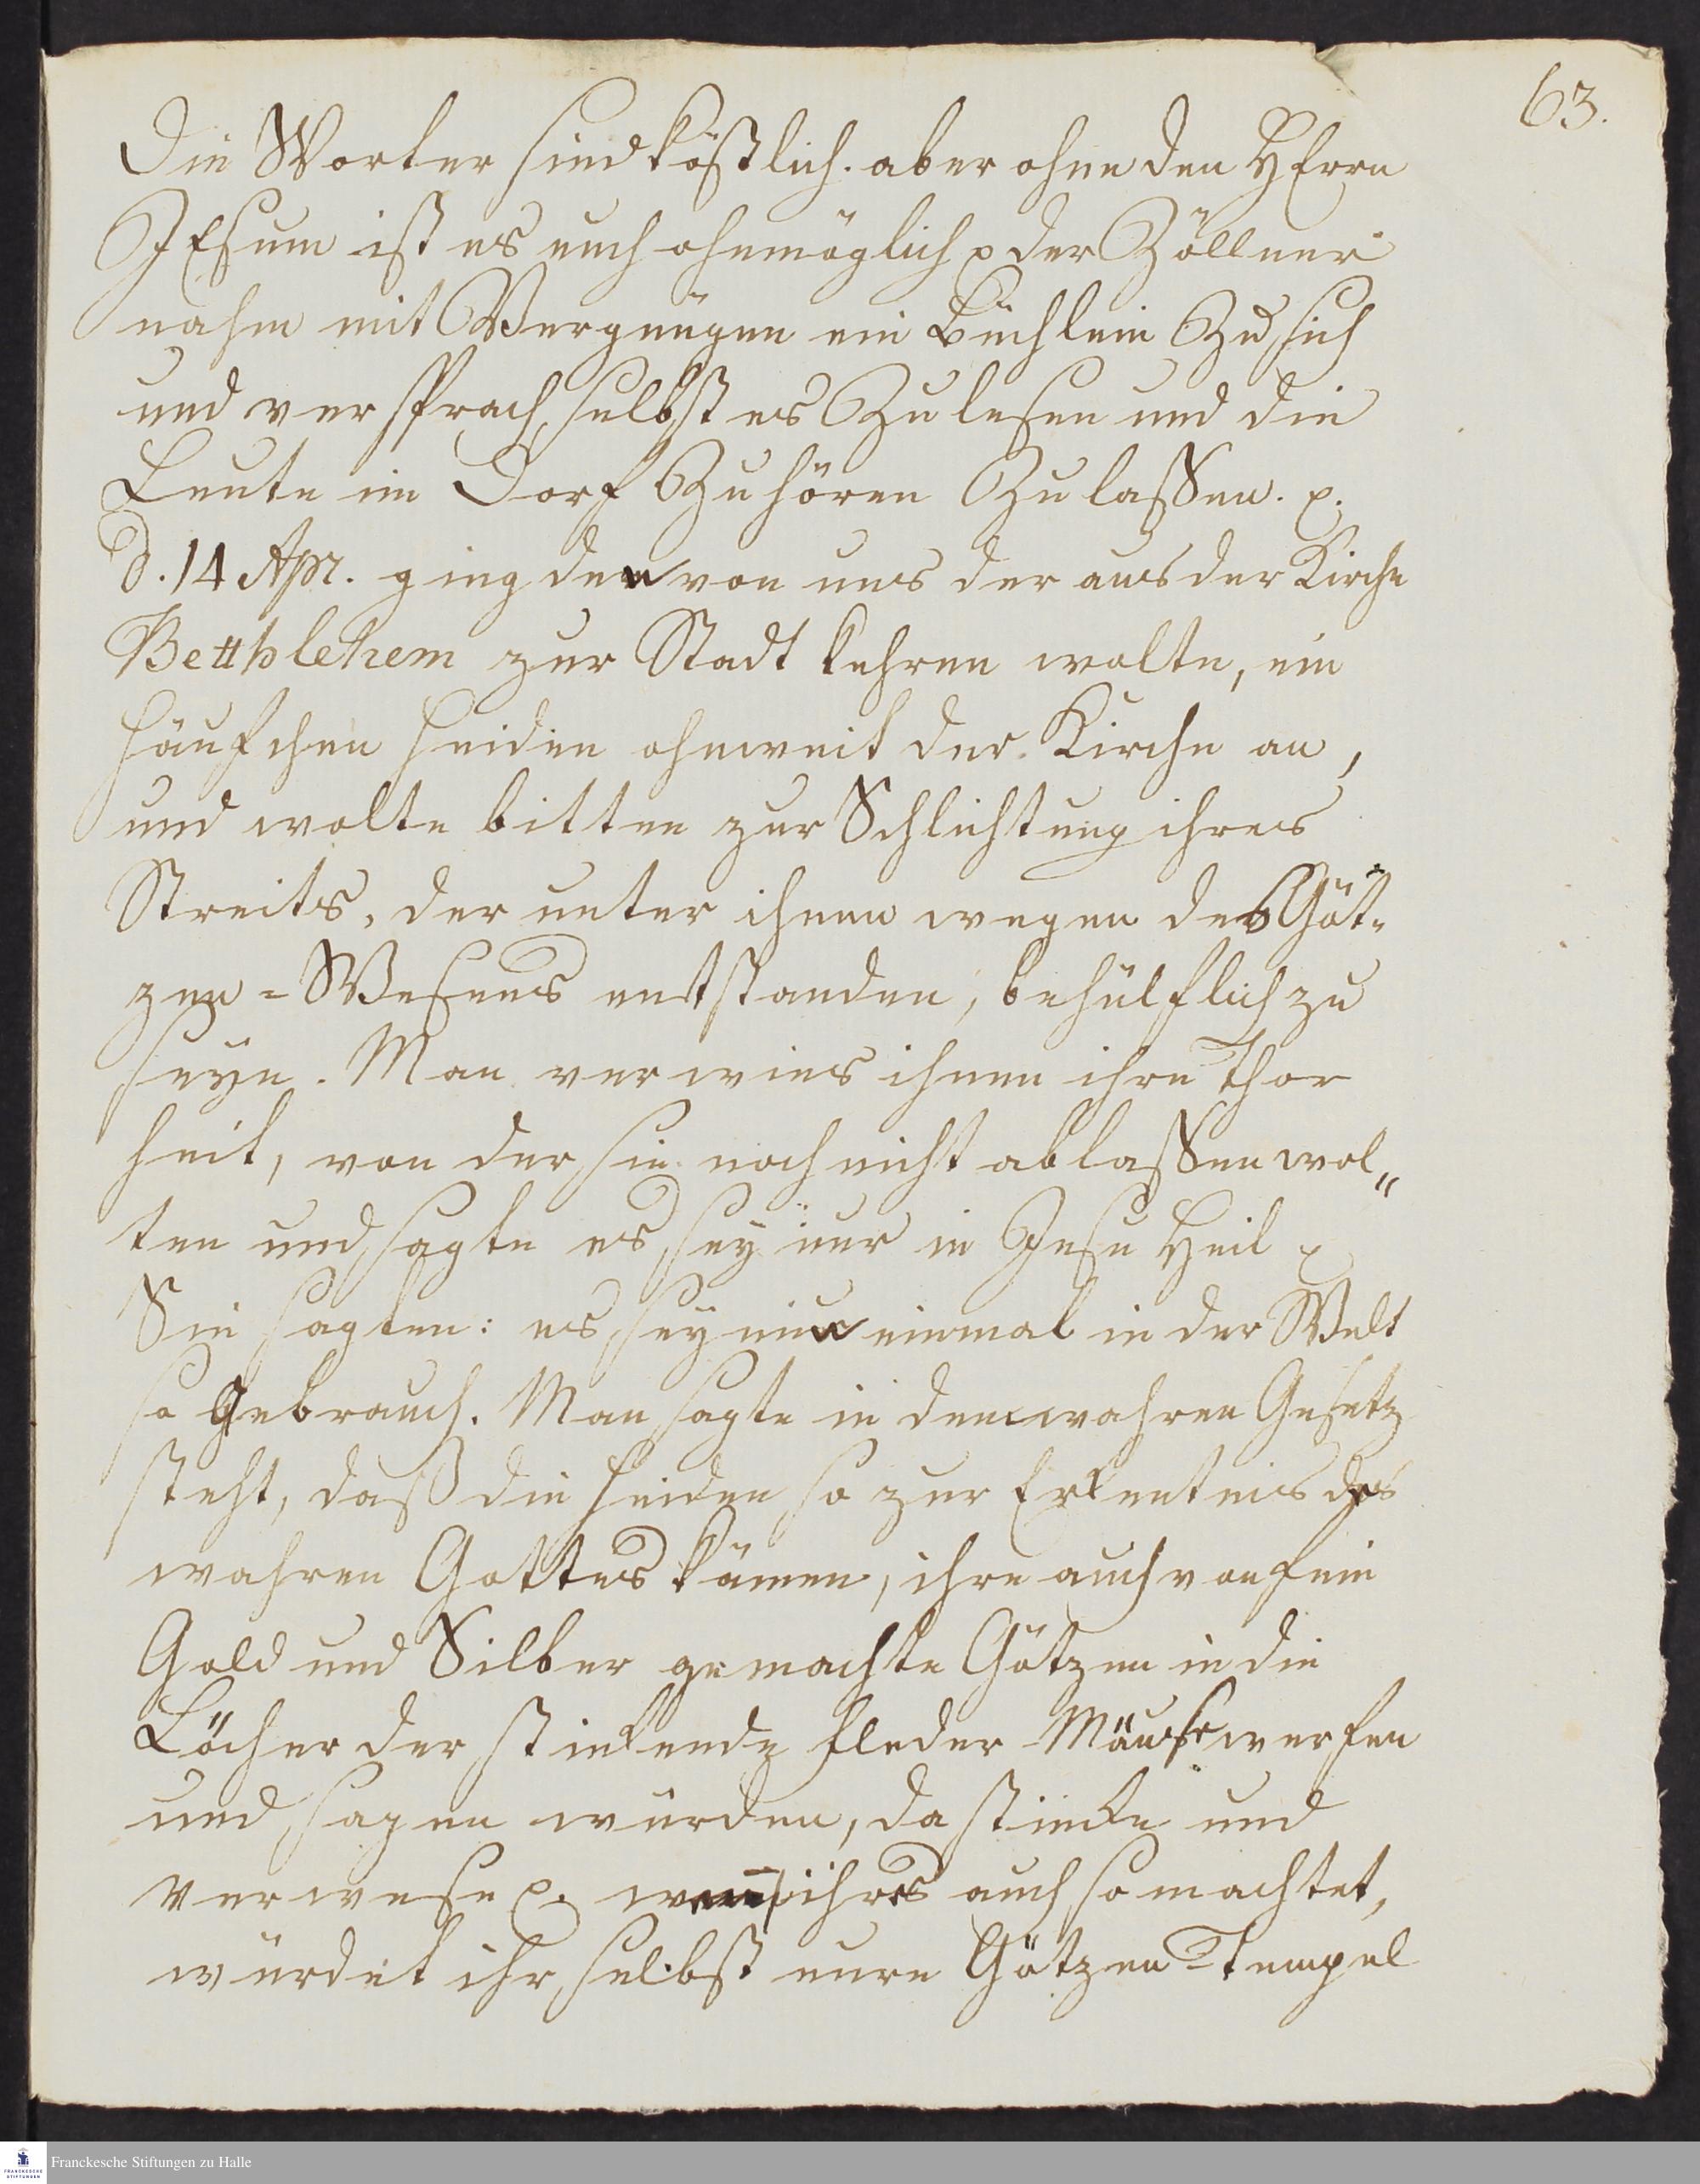 63.
Die Worter sind köstlich. aber ohne den HErrn
JEsum ist es euch ohnmöglich p der Zöllner
nahm mit Vergnügen ein Büchlein Zu sich
und versprach, selbst es Zu lesen und die
Leute im Dorf Zu hören Zu lassen. p.
d. 14 Apr. ging den von uns der aus der Kirche
Betthlehem zur Stadt kehren wolte, ein
Häufchen Heiden ohnweit der Kirche an,
und wolte bitten zur Schlichtung ihres
Streits, der unter ihnen wegen des Göt-
zen-Wesens entstanden, behülflich zu
seyn. Man verwies ihnen ihre Thor
heit, von der sie noch nicht ablassen wol„
ten und sagte es sey nur in Jesu Heil p
Sie sagten: es sey nun einmal in der Welt
so Gebrauch. Man sagte in dem wahren Gesetz
steht, daß die Heiden so zur Erkentnis des
wahren Gottes kämen, ihre auch von fein
Gold und Silber gemachte Götzen in die
Löcher der stinkende Fleder-Mäuse werfen
und sagen würden, da stincke und
verwese p. wenn ihrs auch so machtet,
würdet ihr selbst eure Götzen-Tempel
Franckesche Stiftungen zu Halle